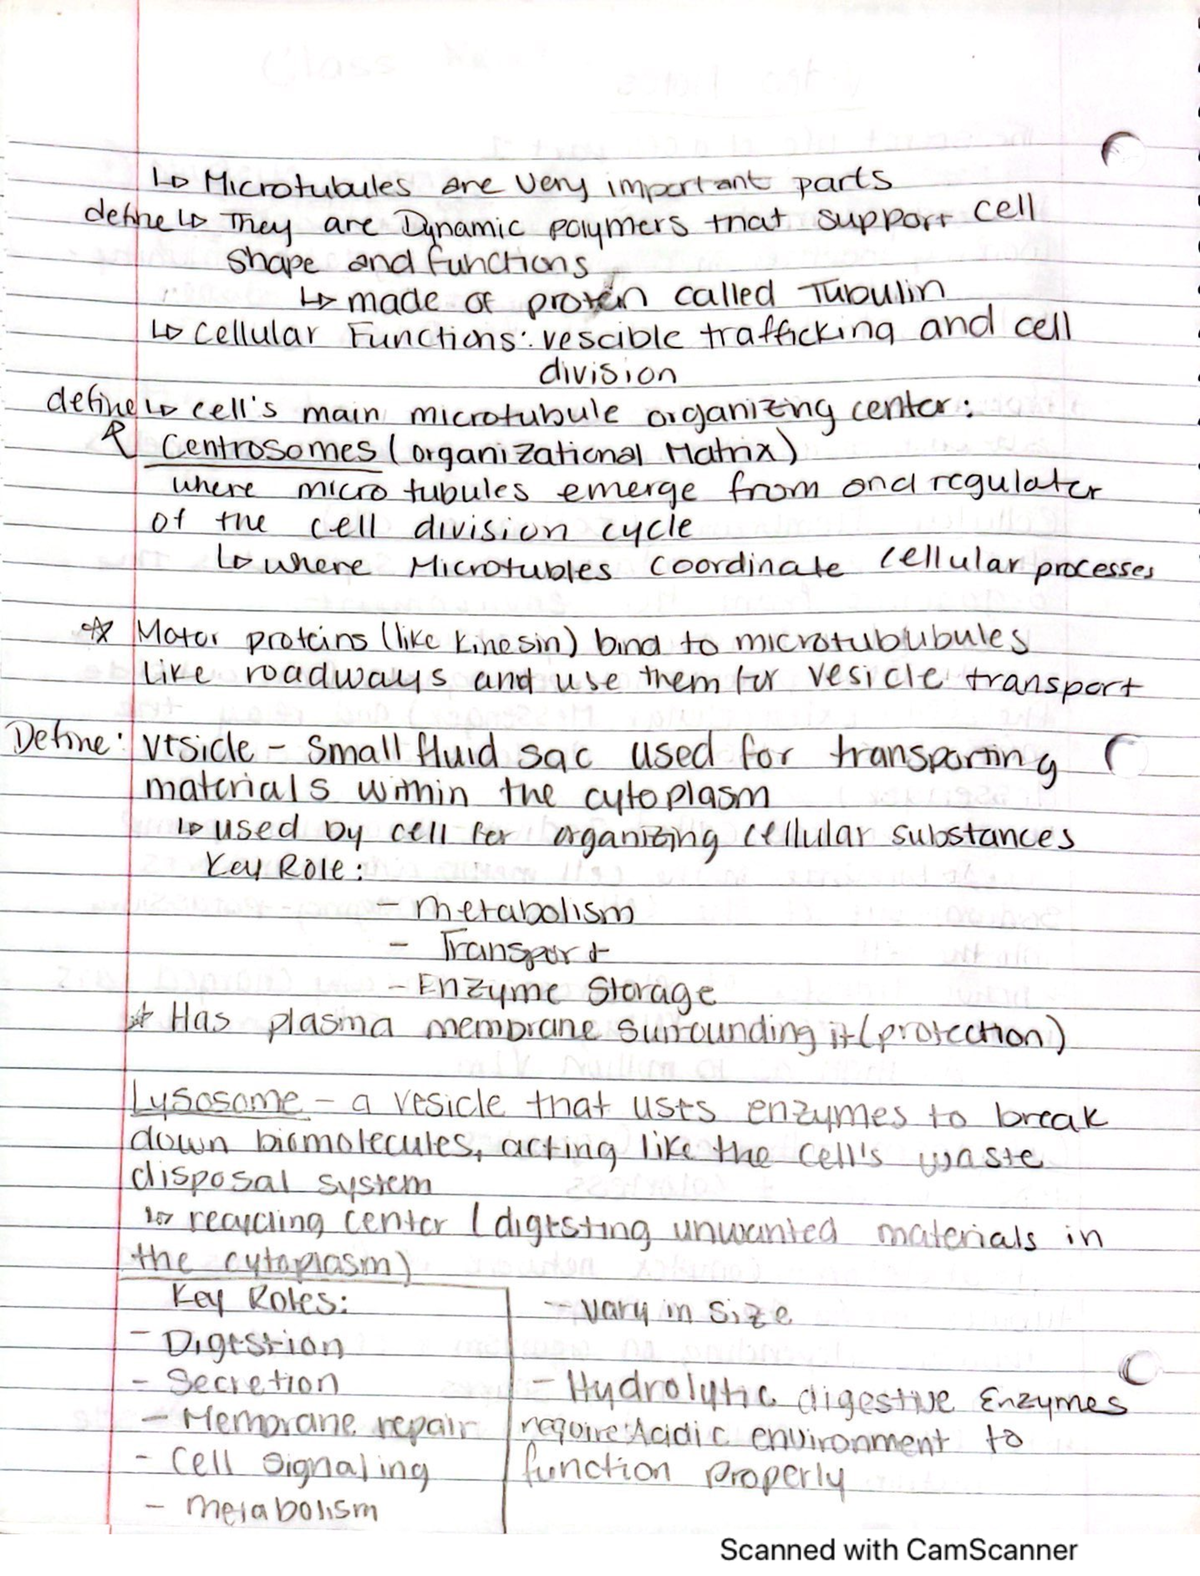 ↳ Microtubules are very important parts
define ↳ They are Dynamic polymers that support cell
shape and functions
↳ made of protein called Tubulin
↳ Cellular Functions: vescible trafficking and cell
division
define ↳ cell's main microtubule organizing center:
Centrosomes (organizational Matrix)
where micro tubules emerge from and regulator
of the cell division cycle
↳ where Microtubles coordinate cellular processes
☆ Motor proteins (like Kinesin) bind to microtububules
like roadways and use them for vesicle transport
Define: vesicle - Small fluid sac used for transporting
materials within the cytoplasm
↳ used by cell for organizing cellular substances
Key Role:
- metabolism
- Transport
- Enzyme Storage
☆ Has plasma membrane surrounding it (protection)
Lysosome - a vesicle that uses enzymes to break
down biomolecules, acting like the cell's waste
disposal system
↳ recycling center (digesting unwanted materials in
the cytoplasm)
Key Roles:
- Digestion
- Secretion
- Membrane repair
- Cell Signaling
- metabolism
- vary in size
- Hydrolytic digestive Enzymes
require: Acidic environment to
function properly
Scanned with CamScanner